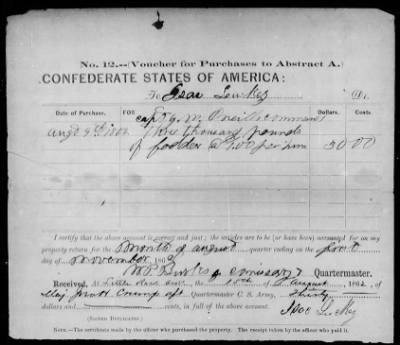 No. 12.--(Voucher for Purchases to Abstract A.)
CONFEDERATE STATES OF AMERICA:
To Isac Dr.
Date of Purchase. FOR Dollars. Cents.
capt command
three thousand pounds
of fodder 30 00
I certify that the above account is correct and just; the articles are to be (or have been) accounted for on my
property return for the month of august quarter ending on the first
day of november 186
Quartermaster.
Received, at the 15th of August, 1862, of
Maj Quartermaster C. S. Army, thirty
dollars and cents, in full of the above account.
(SIGNED DUPLICATES.)
NOTE.—The certificate made by the officer who purchased the property. The receipt taken by the officer who paid it.